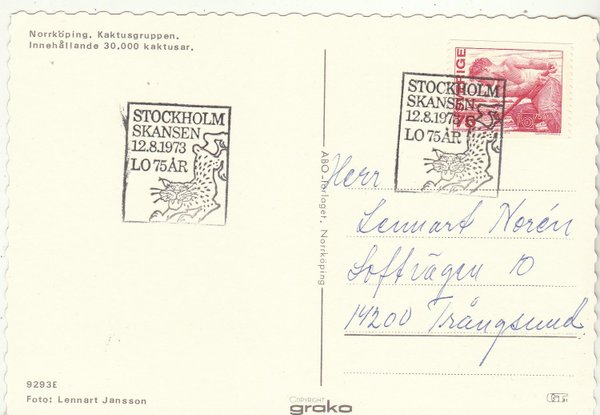 Norrköping. Kaktusgruppen.
Innehållande 30.000 kaktusar.
STOCKHOLM
SKANSEN
12.8.1973
LO 75 ÅR
STOCKHOLM
SKANSEN
12.8.1973
LO 75 ÅR
75
Herr
Lennart Norén
Loftvägen 10
14200 Trångsund
ABO-förlaget, Norrköping
9293E
Foto: Lennart Jansson
COPYRIGHT
grako